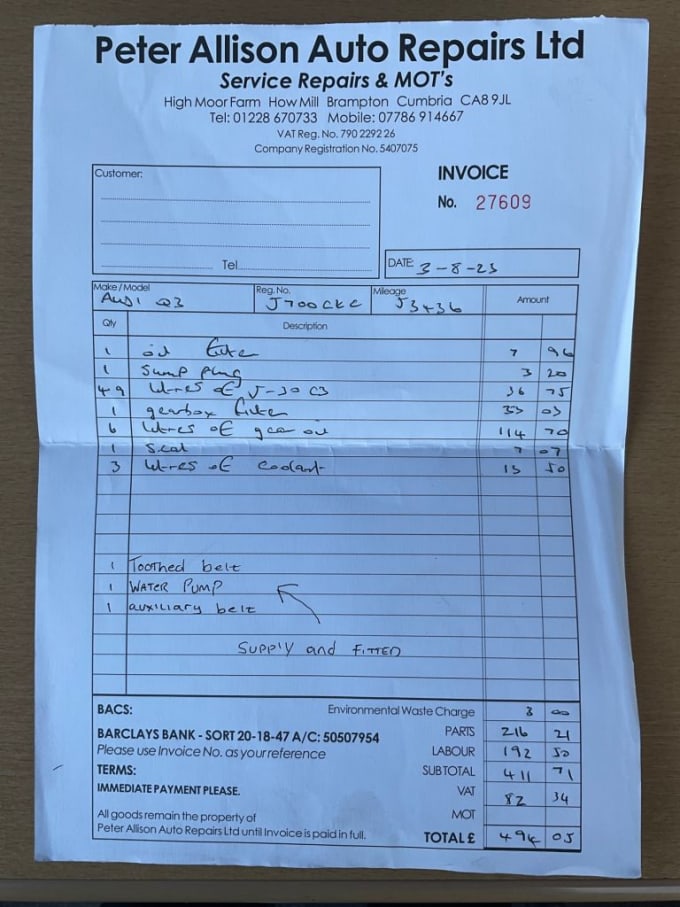 Peter Allison Auto Repairs Ltd
Service Repairs & MOT's
High Moor Farm How Mill Brampton Cumbria CA8 9JL
Tel: 01228 670733 Mobile: 07786 914667
VAT Reg. No. 790 2292 26
Company Registration No. 5407075
Customer:
INVOICE
No. 27609
Tel
DATE: 3-8-23
Make/Model Reg. No. Mileage Amount
AUDI Q3 J700CKC 53436
Qty Description
1 oil filter 7 96
1 sump plug 3 20
4.9 litres of 5-30 C3 36 75
1 gearbox filter 33 03
6 litres of gear oil 114 70
1 seal 7 07
3 litres of coolant 13 50
1 Toothed belt
1 WATER PUMP
1 auxiliary belt
SUPPLY and FITTED
BACS: Environmental Waste Charge 3 00
BARCLAYS BANK - SORT 20-18-47 A/C: 50507954 PARTS 216 21
Please use Invoice No. as your reference LABOUR 192 50
TERMS: SUBTOTAL 411 71
IMMEDIATE PAYMENT PLEASE. VAT 82 34
MOT
All goods remain the property of
Peter Allison Auto Repairs Ltd until Invoice is paid in full. TOTAL £ 494 05